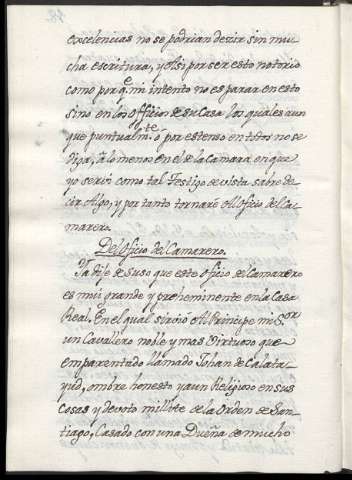 excelencias no se podrian dezir sin mu
cha escritura, y Assi por ser esto notorio
como por q.e mi intento no es parar en esto
sino en los officios de su Casa los quales aun
que puntualm.te ó por estenso en todos no se
diga, á lo menos en el de la Camara en que
yo servi como tal Testigo de vista sabré de
cir Algo; y por tanto tornaré Al Oficio del Ca
marero.
Del Oficio del Camarero.
Ya dije de suso que este oficio de Camarero
es mui grande y preheminente en la Casa
Real. En el qual sirvio Al Principe mi S.or
un Cavallero noble y mas Virtuoso que
emparentado llamado Johan de Calata
yud, ombre honesto y aun Religioso en sus
cosas y devoto millite de la Orden de San
tiago, Casado con una Dueña de mucho